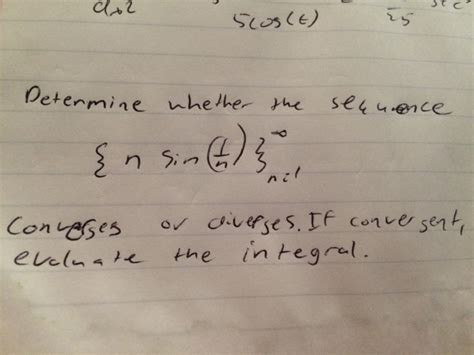 5cos(t)
25
Determine whether the sequence
{ n sin(1/n) }^∞_{n=1}
Converges or diverges. If convergent,
evaluate the integral.